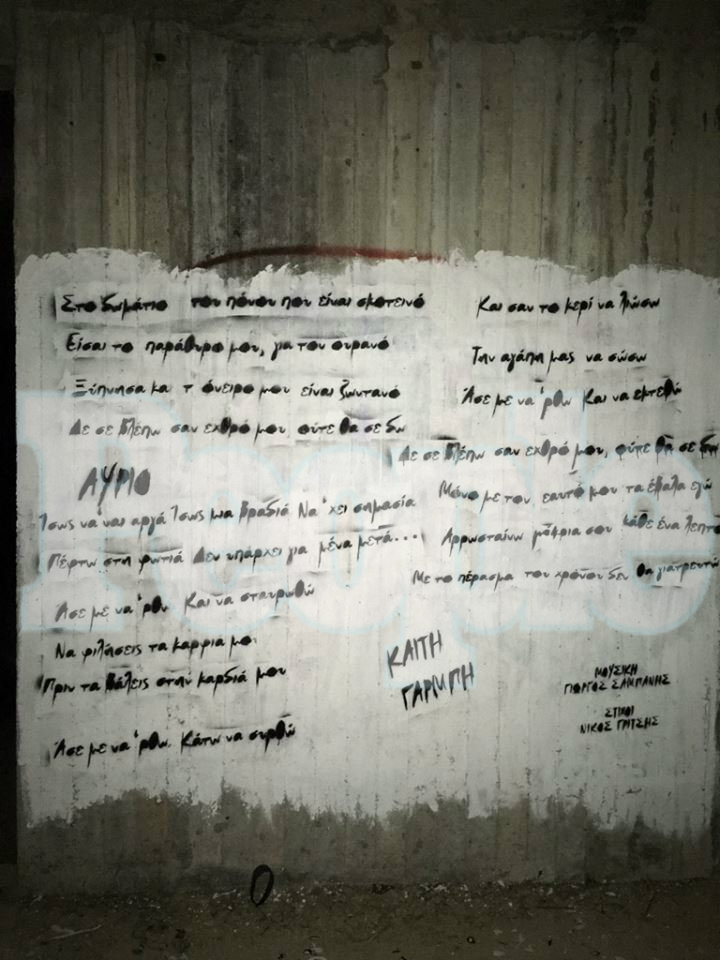 Στο δωμάτιο του πόνου που είναι σκοτεινό
Είσαι το παράθυρο μου, για τον ουρανό
Ξύπνησα κα τ' όνειρο μου είναι ζωντανό
Δε σε βλέπω σαν εχθρό μου, ούτε θα σε δω
ΑΥΡΙΟ
Ίσως να 'ναι αργά Ίσως μια βραδιά Να 'χει σημασία
Πέφτω στη φωτιά Δεν υπάρχει για μένα μετά...
Άσε με να 'ρθω Και να σταυρωθώ
Να φιλήσεις τα καρφια μου
Πριν τα βάλεις στην καρδιά μου
Άσε με να 'ρθω. Κάτω να συρθώ
Και σαν το κερί να λιώσω
Την αγάπη μας να σώσω
Άσε με να 'ρθω Και να εκτεθώ
Δε σε βλέπω σαν εχθρό μου, ούτε θα σε δω
Μόνο με τον εαυτό μου τα έβαλα εγώ
Αρρωσταίνω μακρια σου κάθε ένα λεπτό
Με το πέρασμα του χρόνου δεν θα γιατρευτώ
ΚΑΙΤΗ
ΓΑΡΜΠΗ
ΜΟΥΣΙΚΗ
ΓΙΩΡΓΟΣ ΣΑΜΠΑΝΗΣ
ΣΤΙΧΟΙ
ΝΙΚΟΣ ΓΡΙΤΣΗΣ